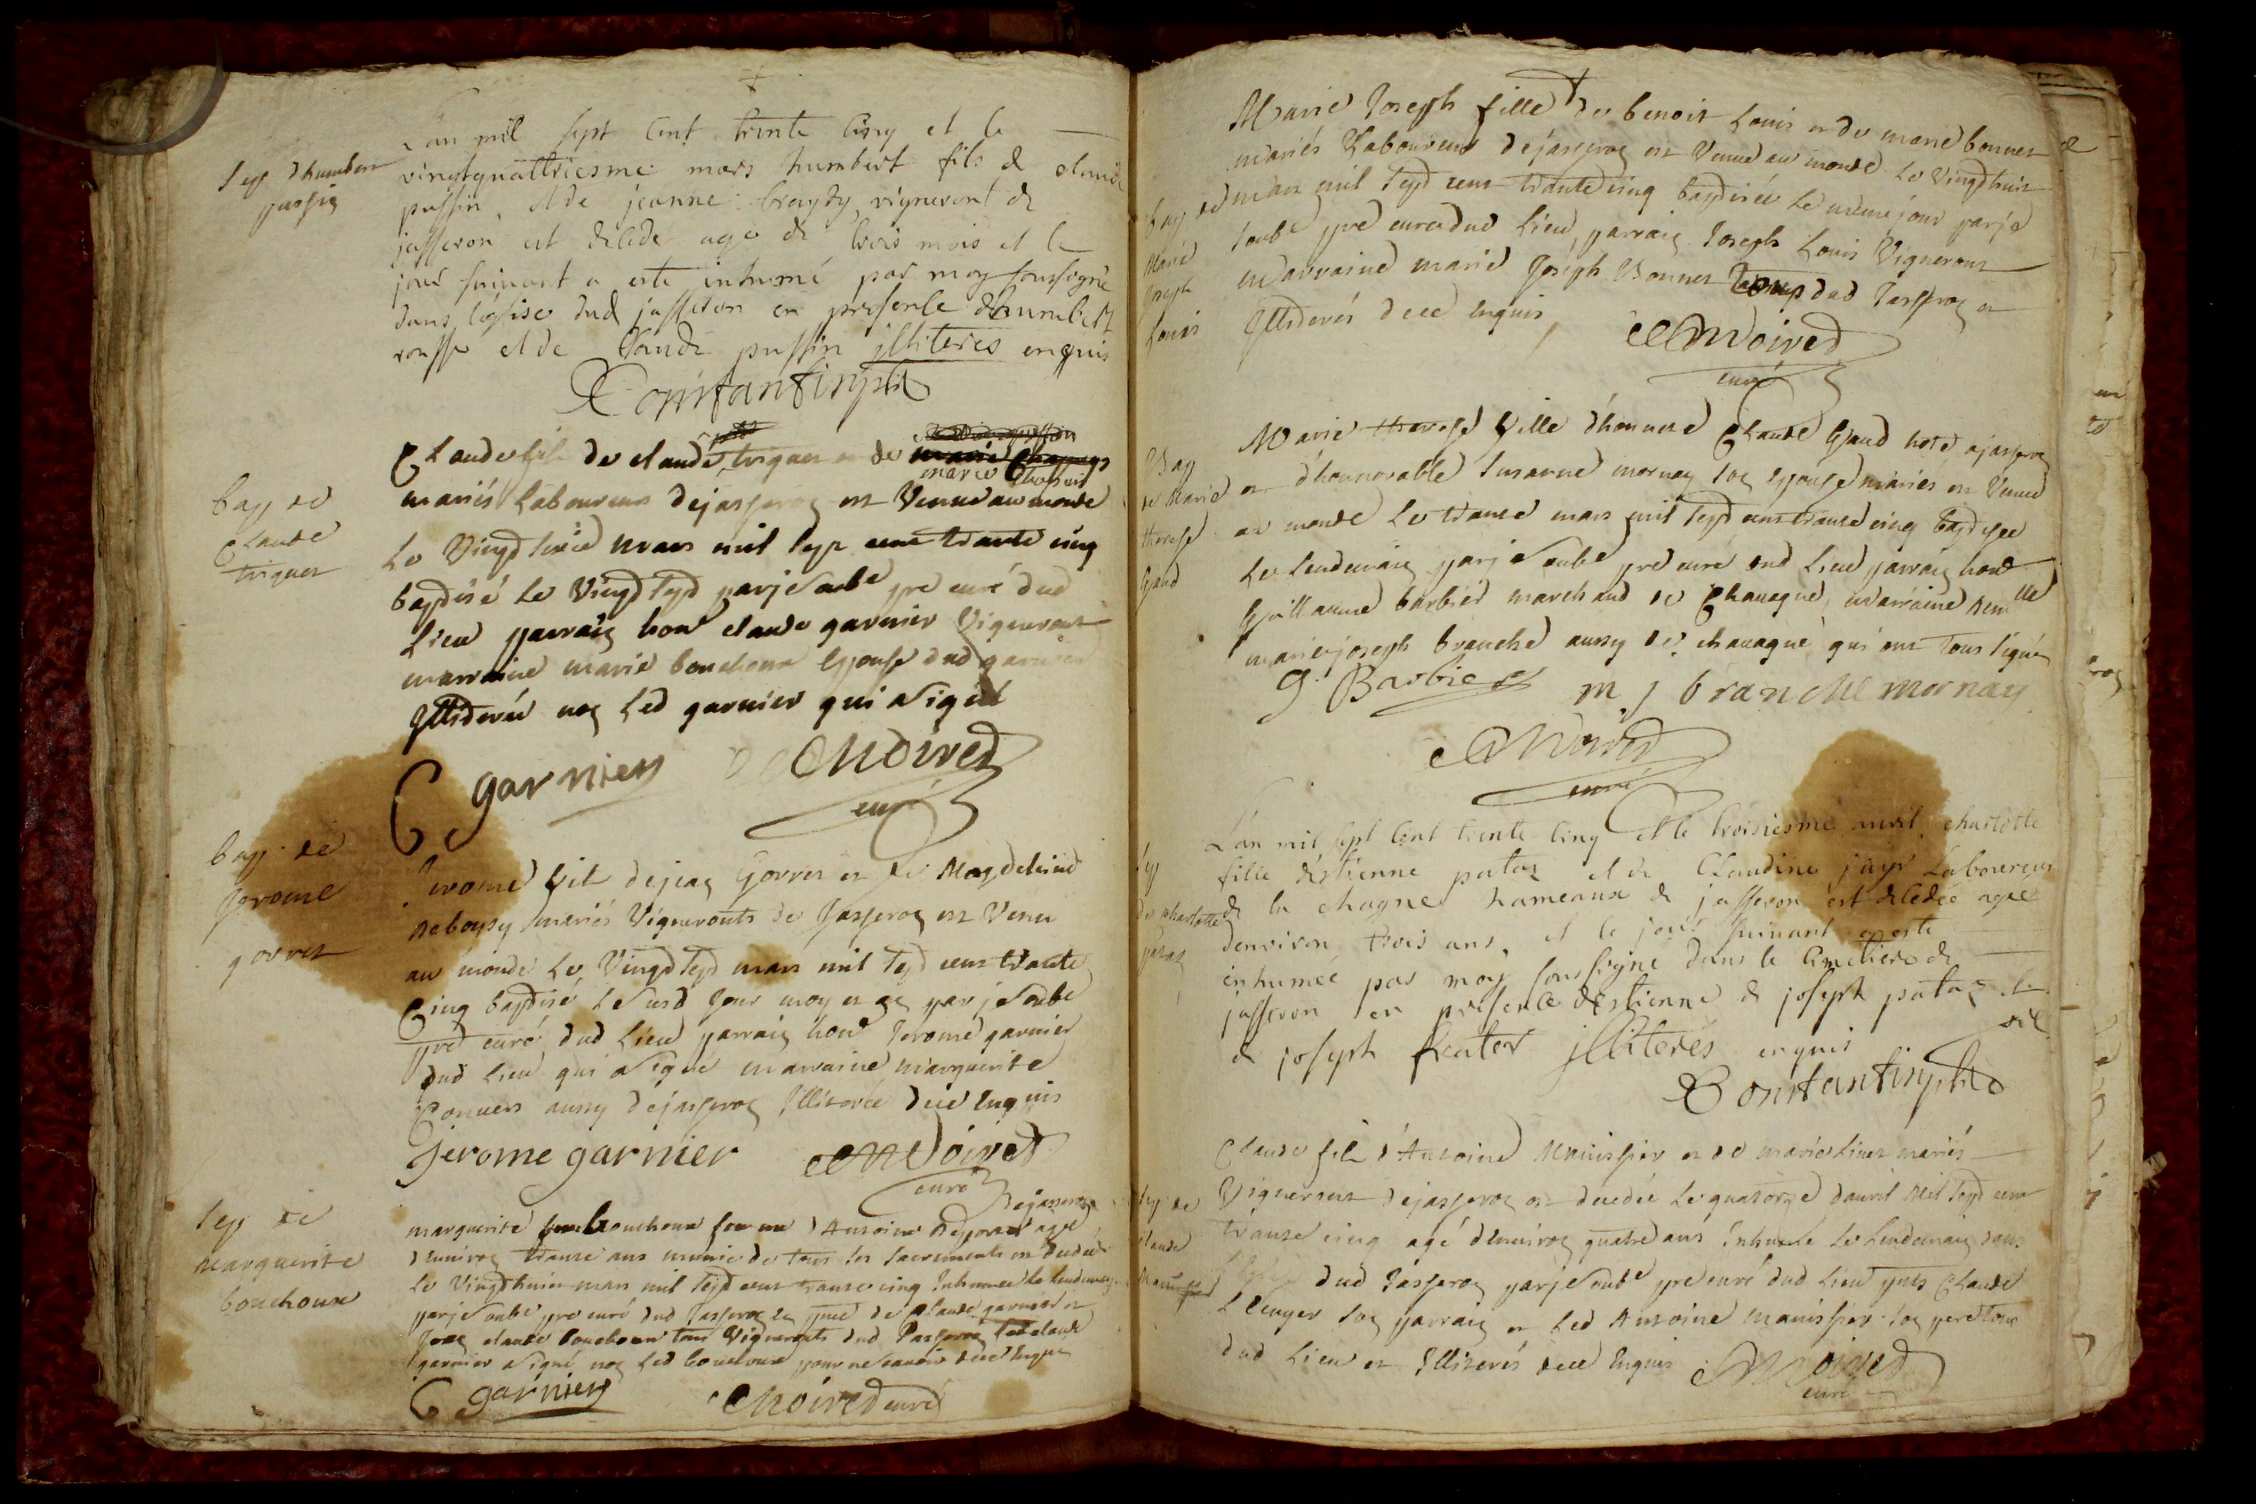 Sep d humbert
pussin
L'an mil sept cent trente cinq et le
vingtquattriesme mars humbert fils de claude
pussin, et de jeanne vigneront de
jasseron est décédé agé de trois mois et le
jour suivant a esté inhumé par moy soussigné
dans léglise dud jasseron en présence dhumbert
rousse et de Claude pussin illiterés enquis
Constantin
bap de
Claude
triquet
Claude fils de claude triquet et de
marie
mariés Laboureurs dejasseron est Venu au monde
Le Vingd sixie mars mil sept cent trante cinq
baptisé Le Vingd sept par je soubé pre curé dud
Lieu parrain hond claude garnier Vigneront
marraine marie bouchoux Epouse dud garnier
Illiterée non Led garnier qui a signé
C garnier Moired
curé
bap de
Jerome
gorret
Jerome fils dejean Gorret et de Magdeleine
mariés Vigneronts de Jasseron est Venu
au monde Le Vingd sept mars mil sept cens trante
Cinq baptisé Le susd Jour moy et an par je soubé
pre curé dud Lieu parrain hond Jerome garnier
dud Lieu qui a signé marraine marguerite
Convers aussy dejasseron Illiterée de ce Enquis
Jerome garnier Moired
curé
Sep de
Marguerite
bouchoux
dejasseron
marguerite bouchoux femme d Antoine agée
d Environ trante ans munie de tous les sacrements est decedée
Le Vingdhuit mars mil sept cens trante cinq Inhumée Le lendemain
par je soubé pre curé dud Jasseron En pnce de Claude garnier et
Jean claude bouchoux tous Vignerons dud Jasseron Led claude
garnier a signé non Led bouchoux pour ne savoir de ce Enquis
C garnier Moired curé
bap de
Marie
Joseph
Louis
Marie Joseph fille de benoit Louis et de marie bonnet
mariés Laboureurs dejasseron est Venue au monde Le Vingdhuit
mars mil sept cens trante cinq baptisée Le meme jour par je
soubé pre curé dud Lieu, parrain Joseph Louis Vigneront
marraine marie Joseph Bonnet dud Jasseron et
Illiterés de ce Enquis,
Moired
curé
Bap
de Marie
therese
Gaud
Marie therese fille d'honneste Claude Gaud hote ajasseron
et d'honnorable Susanne mornay son Epouse mariés est Venue
au monde Le trante mars mil sept cens trante cinq baptisée
Le Lendemain par je soubé pre curé dud Lieu parrain hond
Guillaume barbier marchand de Chavagne, marraine demlle
marie joseph branche aussy de chavagne qui ont tous signés
g. Barbier m. j branche mornay
Moired
curé
Sep
de charlotte
putaz
L'an mil sept cent trente cinq et le troisiesme avril charlotte
fille d'estienne putaz et de Claudine laboureurs
de la chagne hameaux de jasseron est décédée agée
denviron trois ans, et le jour suivant a esté
inhumée par moy soussigné dans le cimetiere de
jasseron en présence destienne & joseph putaz
& joseph frater illiterés enquis
Constantin
Sep de
claude
Claude fils d'Antoine Manissier et de marie mariés
Vigneront dejasseron est decedé Le quatorze davril Mil sept cens
trante cinq agé d'Environ quatre ans Inhumé Le Lendemain dans
dud Jasseron par je soubé pre curé dud Lieu pnts Claude
son parrain et Led Antoine Manissier son pere tous
dud Lieu et Illiterés de ce Enquis Moired
curé